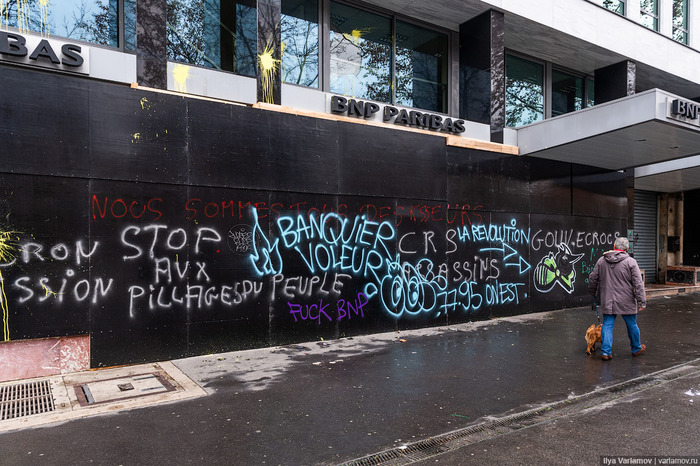 BAS
BNP PARIBAS
BNP
NOUS SOMMES TOUS DES CASSEURS
RON
SSION
STOP
AUX
PILLAGES DU PEUPLE
BANQUIER
VOLEUR
FUCK BNP
CRS
ASSASSINS
LA REVOLUTION
77 95 ONEST
GOUV. ECROCS
Ilya Varlamov | varlamov.ru